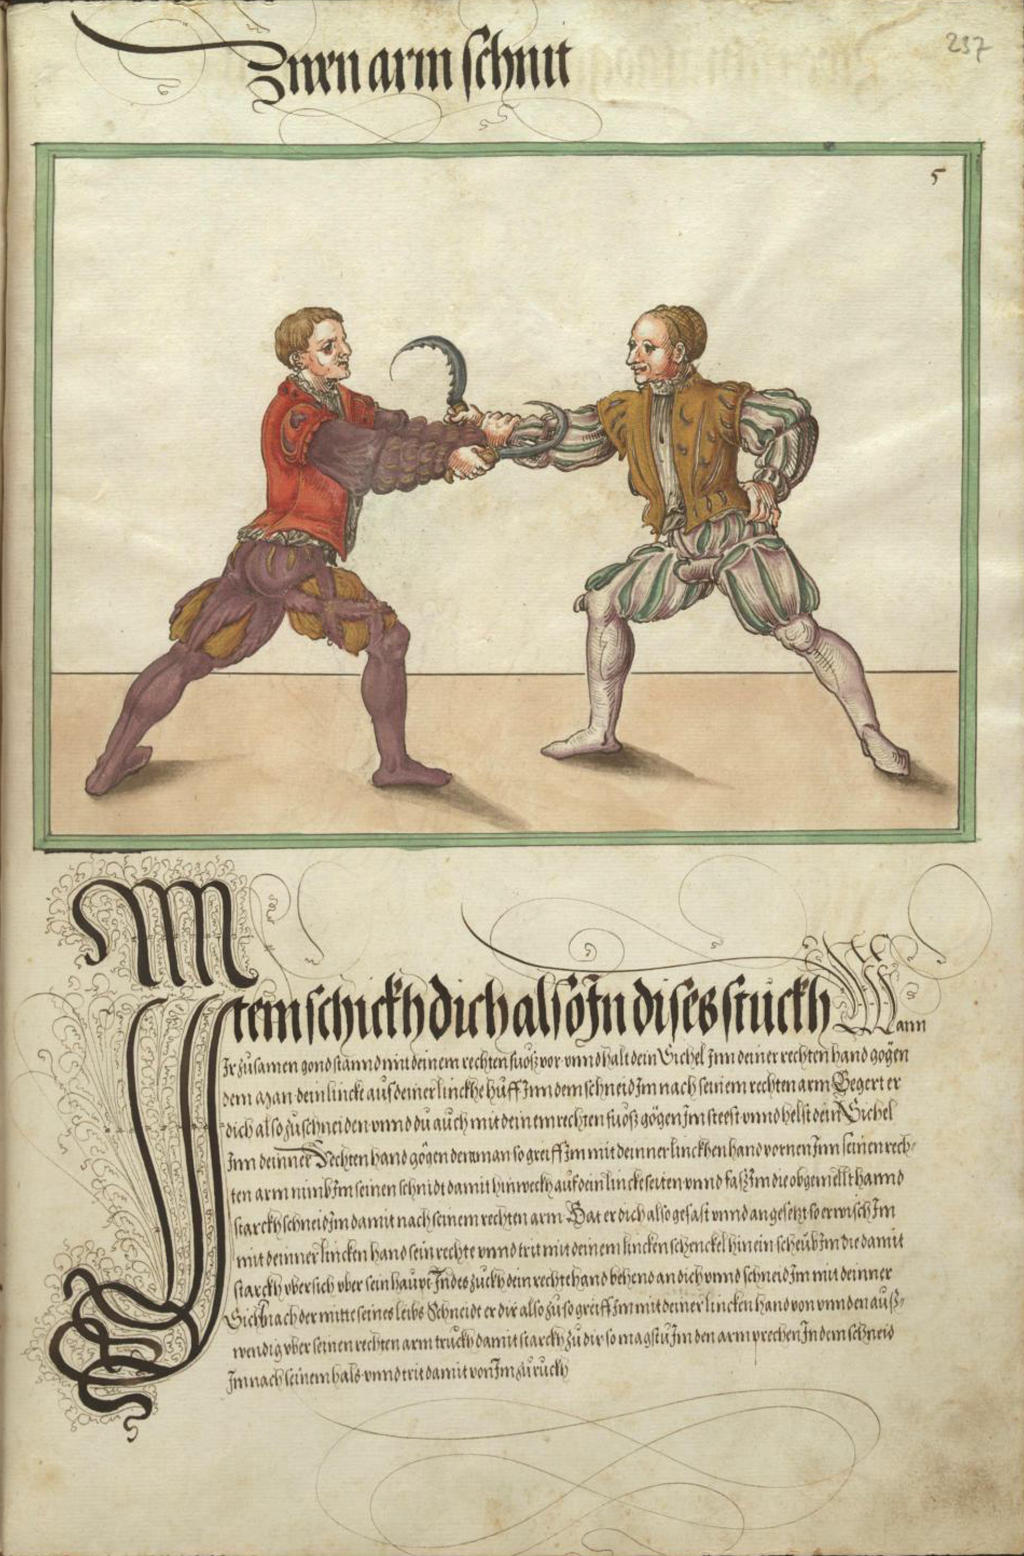 Zwen arm schnit
237
5
Item schickh dich also In dises stuckh Wann
Ir zusamen gond stannd mit deinem rechten fuoß vor vnnd halt dein Sichel Inn deiner rechten hand gögen
dem Man dein lincke auf deiner linckhe huff Inn dem schneid Im nach seinem rechten arm Begert er
dich also zuschneiden vnnd du auch mit deinem rechten fuoß gögen Im steest vnnd helst dein Sichel
Inn deinner Rechten hand gögen dem man so greiff Im mit deinner linckhen hand vornen Inn seinen rech-
ten arm nimb Im seinen schnidt damit hinweckh auf dein lincke seiten vnnd faß Im die obgemellt hannd
starckh schneid Im damit nach seinem rechten arm Hat er dich also gefast vnnd angesetzt so erwisch Im
mit deinner lincken hand sein rechte vnnd trit mit deinem lincken schenckel hinein scheub Im die damit
starckh vbersich vber sein haupt Indes zuckh dein rechte hand behend an dich vnnd schneid Im mit deinner
Sichl nach der mitte seines leibs Schneidt er dir also zu so greiff Im mit deiner lincken hand von vnnden auß-
wendig vber seinen rechten arm truckh damit starckh zu dir so magstu Im den arm prechen In dem schneid
Im nach seinem hals vnnd trit damit von Im zuruckh